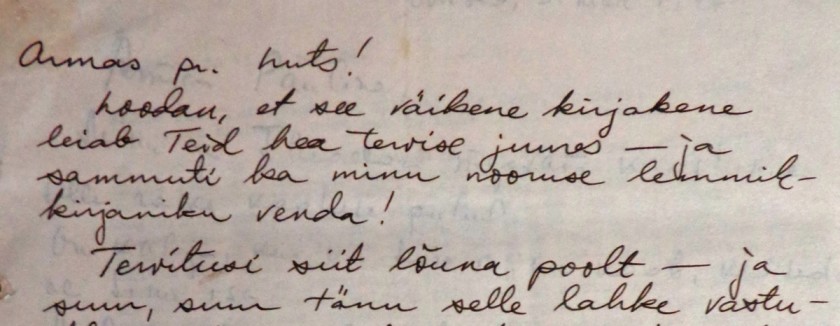 Armas pr. Nuts!
Loodan, et see väikene kirjakene
leiab Teid hea tervise juures – ja
sammuti ka minu nooruse lemmik-
kirjaniku venda!
Tervitusi siit lõuna poolt – ja
suur, suur tänu selle lahke vastu-